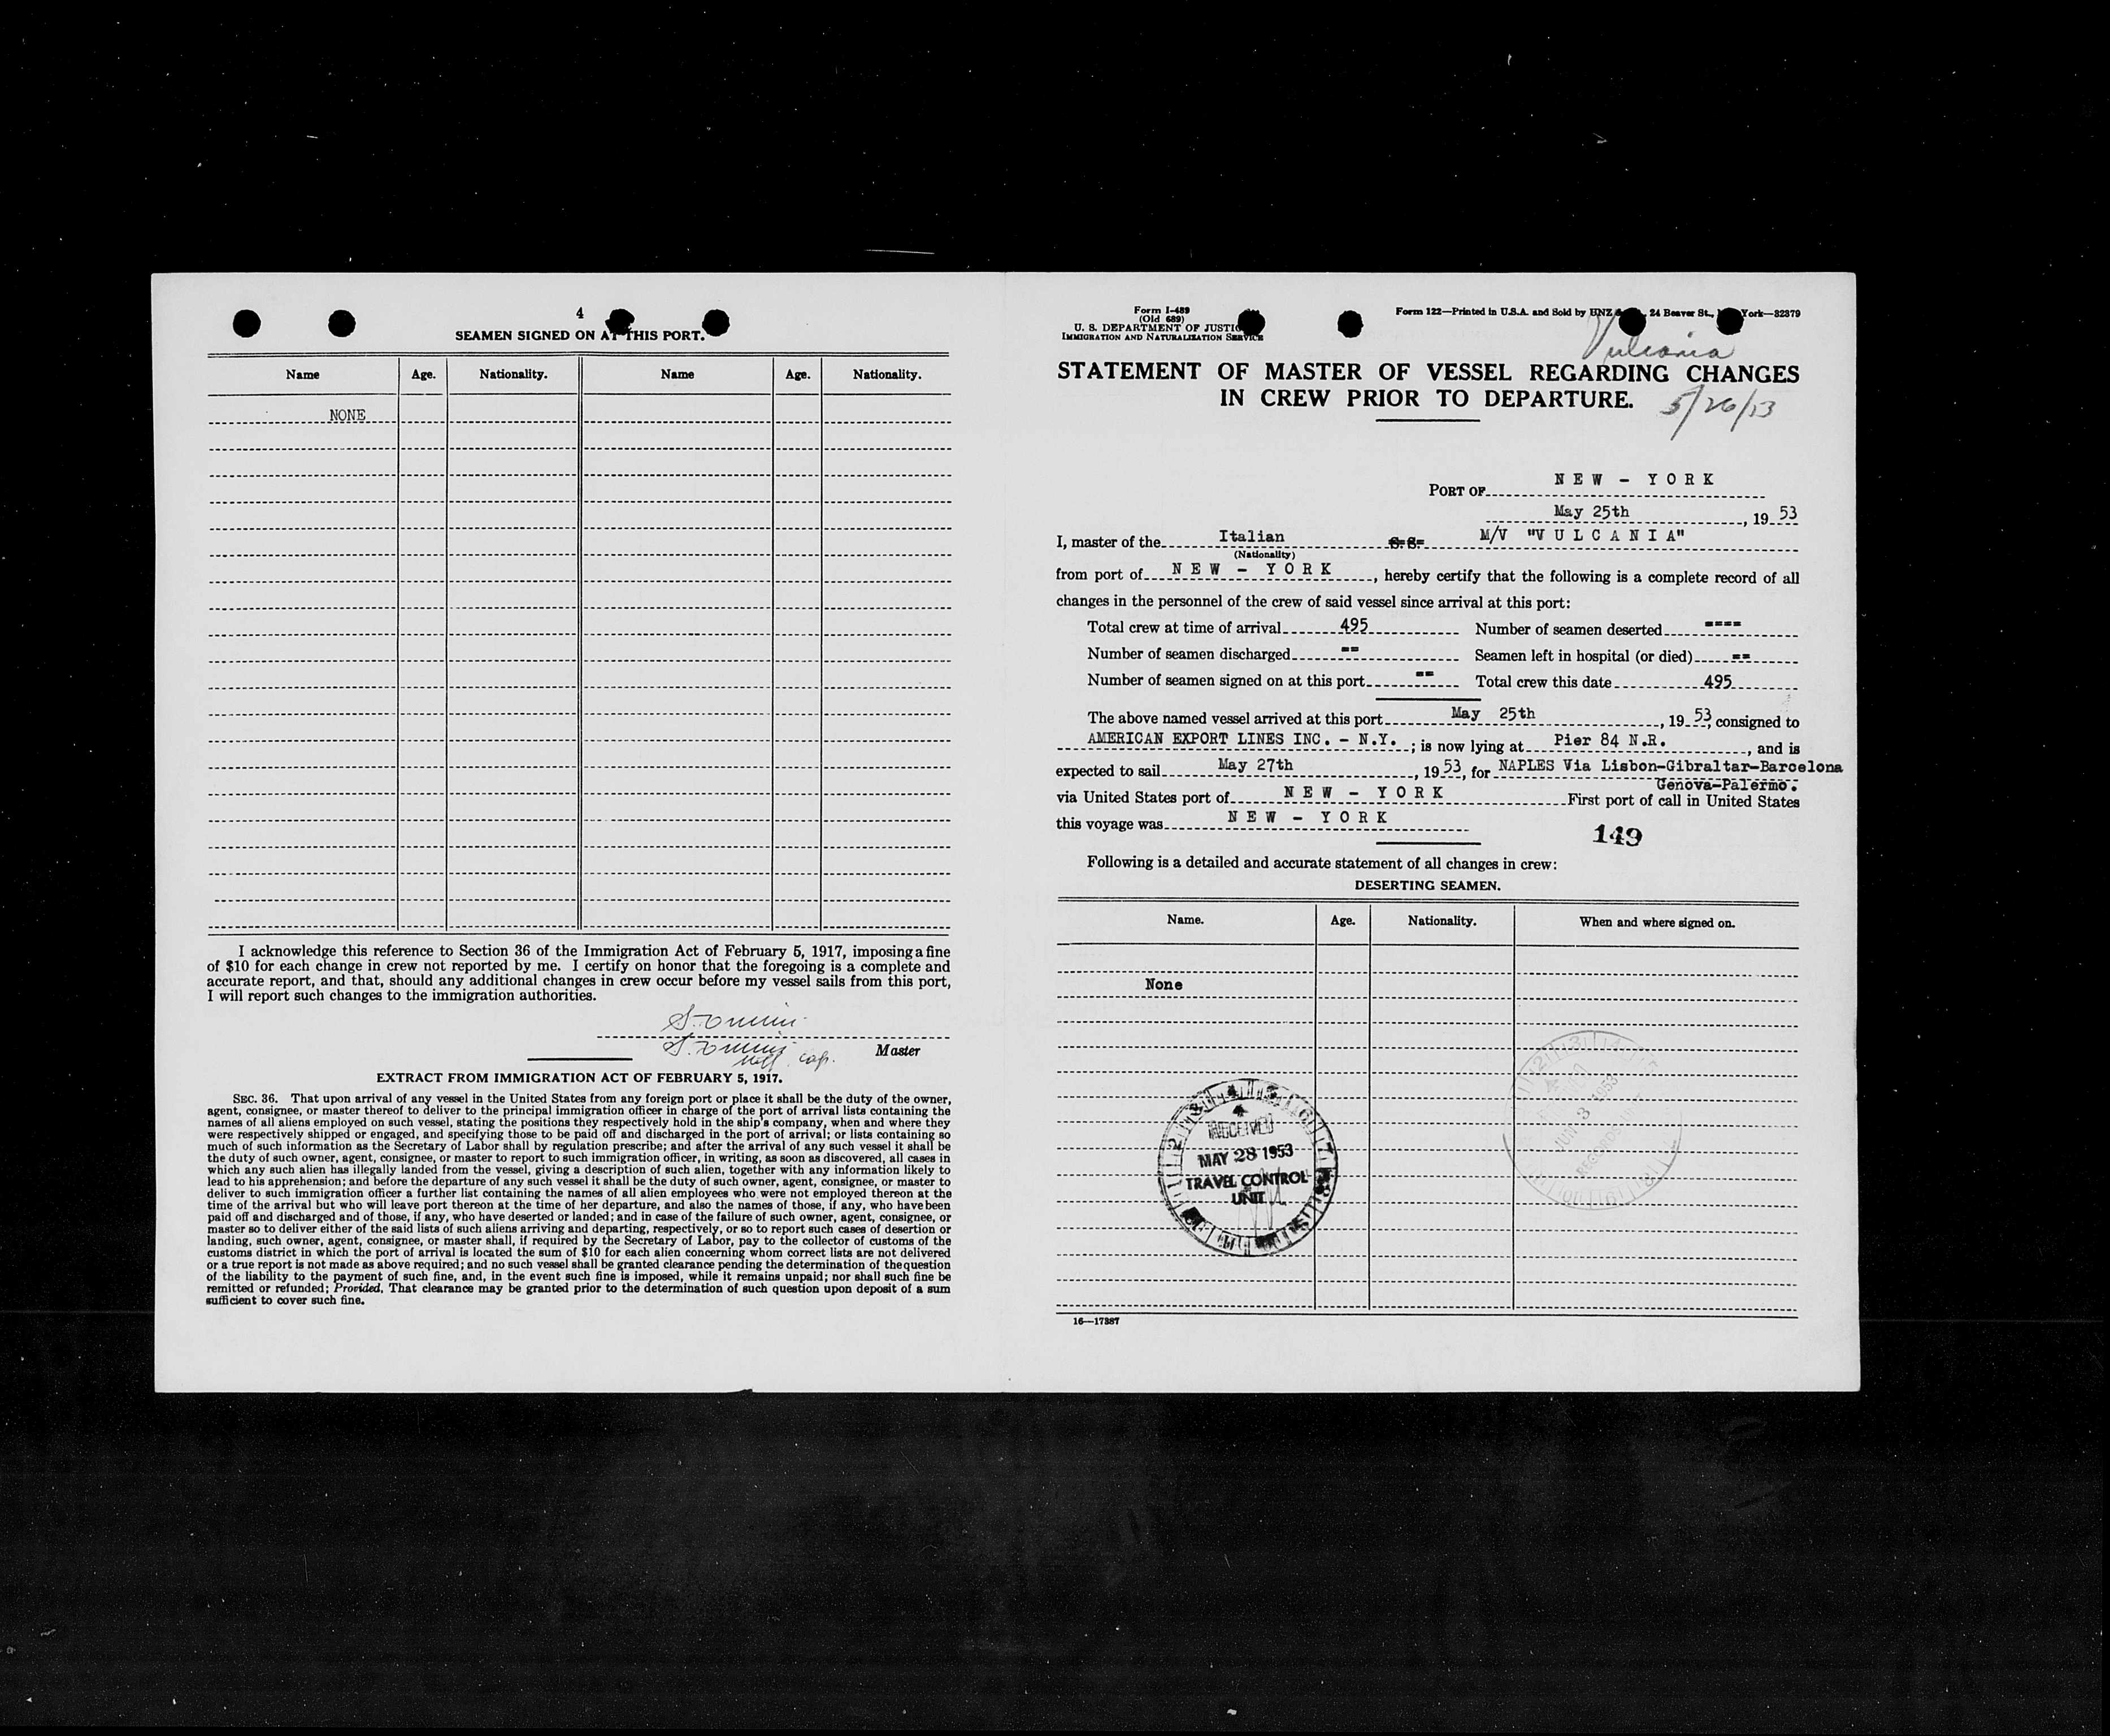 4
SEAMEN SIGNED ON AT THIS PORT.
Name Age. Nationality. Name Age. Nationality.
NONE
I acknowledge this reference to Section 36 of the Immigration Act of February 5, 1917, imposing a fine
of $10 for each change in crew not reported by me. I certify on honor that the foregoing is a complete and
accurate report, and that, should any additional changes in crew occur before my vessel sails from this port,
I will report such changes to the immigration authorities.
Master
EXTRACT FROM IMMIGRATION ACT OF FEBRUARY 5, 1917.
SEC. 36. That upon arrival of any vessel in the United States from any foreign port or place it shall be the duty of the owner,
agent, consignee, or master thereof to deliver to the principal immigration officer in charge of the port of arrival lists containing the
names of all aliens employed on such vessel, stating the positions they respectively hold in the ship's company, when and where they
were respectively shipped or engaged, and specifying those to be paid off and discharged in the port of arrival; or lists containing so
much of such information as the Secretary of Labor shall by regulation prescribe; and after the arrival of any such vessel it shall be
the duty of such owner, agent, consignee, or master to report to such immigration officer, in writing, as soon as discovered, all cases in
which any such alien has illegally landed from the vessel, giving a description of such alien, together with any information likely to
lead to his apprehension; and before the departure of any such vessel it shall be the duty of such owner, agent, consignee, or master to
deliver to such immigration officer a further list containing the names of all alien employees who were not employed thereon at the
time of the arrival but who will leave port thereon at the time of her departure, and also the names of those, if any, who have been
paid off and discharged and of those, if any, who have deserted or landed; and in case of the failure of such owner, agent, consignee, or
master so to deliver either of the said lists of such aliens arriving and departing, respectively, or so to report such cases of desertion or
landing, such owner, agent, consignee, or master shall, if required by the Secretary of Labor, pay to the collector of customs of the
customs district in which the port of arrival is located the sum of $10 for each alien concerning whom correct lists are not delivered
or a true report is not made as above required; and no such vessel shall be granted clearance pending the determination of the question
of the liability to the payment of such fine, and, in the event such fine is imposed, while it remains unpaid; nor shall such fine be
remitted or refunded; Provided, That clearance may be granted prior to the determination of such question upon deposit of a sum
sufficient to cover such fine.
Form I-489
(Old 689)
U. S. DEPARTMENT OF JUSTICE
IMMIGRATION AND NATURALIZATION SERVICE
Form 122—Printed in U.S.A. and Sold by UNZ 24 Beaver St., York—32379
Vulcania
STATEMENT OF MASTER OF VESSEL REGARDING CHANGES
IN CREW PRIOR TO DEPARTURE.
5/26/53
PORT OF NEW - YORK
May 25th, 1953
I, master of the Italian S.S. M/V "VULCANIA"
(Nationality)
from port of NEW - YORK, hereby certify that the following is a complete record of all
changes in the personnel of the crew of said vessel since arrival at this port:
Total crew at time of arrival 495 Number of seamen deserted ----
Number of seamen discharged -- Seamen left in hospital (or died) --
Number of seamen signed on at this port -- Total crew this date 495
The above named vessel arrived at this port May 25th, 1953, consigned to
AMERICAN EXPORT LINES INC. - N.Y.; is now lying at Pier 84 N.R., and is
expected to sail May 27th, 1953, for NAPLES Via Lisbon-Gibraltar-Barcelona
Genova-Palermo.
via United States port of NEW - YORK First port of call in United States
this voyage was NEW - YORK
149
Following is a detailed and accurate statement of all changes in crew:
DESERTING SEAMEN.
Name. Age. Nationality. When and where signed on.
None
RECEIVED
MAY 28 1953
TRAVEL CONTROL
UNIT
JUN 3 1953
RECORDS
16—17387